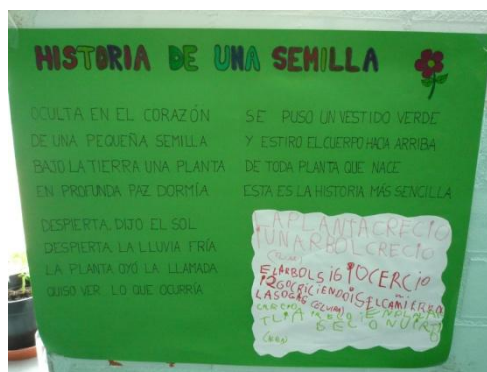 HISTORIA DE UNA SEMILLA
OCULTA EN EL CORAZÓN
DE UNA PEQUEÑA SEMILLA
BAJO LA TIERRA UNA PLANTA
EN PROFUNDA PAZ DORMÍA
DESPIERTA, DIJO EL SOL
DESPIERTA, LA LLUVIA FRÍA
LA PLANTA OYÓ LA LLAMADA
QUISO VER LO QUE OCURRÍA
SE PUSO UN VESTIDO VERDE
Y ESTIRO EL CUERPO HACIA ARRIBA
DE TODA PLANTA QUE NACE
ESTA ES LA HISTORIA MÁS SENCILLA
LAPLANTACRECIO
IUNARBOLCRECIO